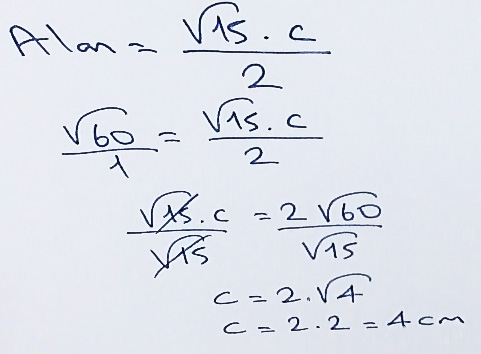 Alan = √15 . c / 2
√60 / 1 = √15 . c / 2
√15 . c / √15 = 2 √60 / √15
c = 2 . √4
c = 2 . 2 = 4 cm